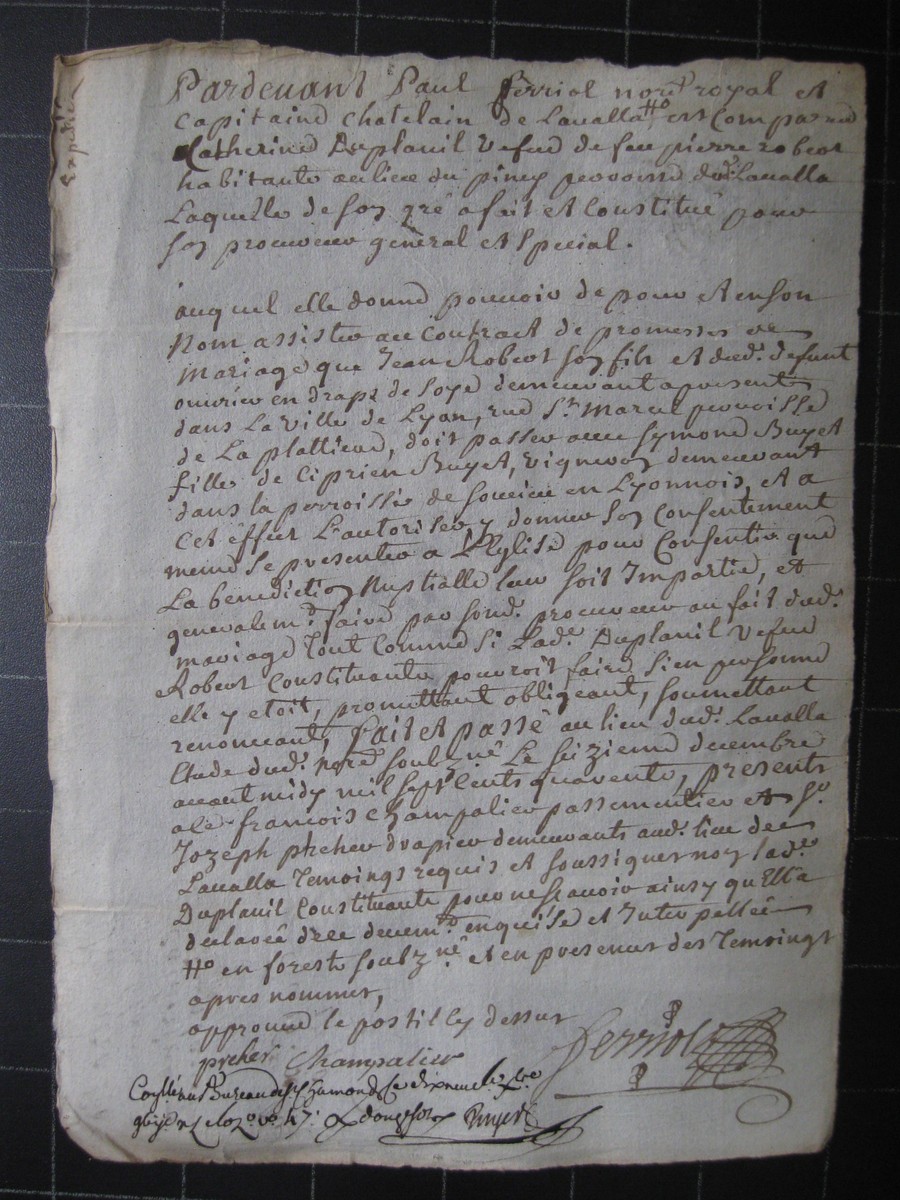 Expédiée
Pardevant Paul Ferriol nore royal et
Capitaine Chatelain de Lavalla # est Comparue
Catherine Duplanil vefue de feu pierre robert
habitante au lieu du piney parroisse dud. Lavalla
Laquelle de son gré a fait et Constitué pour
son procureur général et special.
auquel elle donne pouvoir de pour et en son
Nom assister au Contract de promesses de
Mariage que Jean Robert son fils et dud. defunt
ouvrier en draps de soye demeurant apresent
dans La ville de Lyon, rue St. Marcel parroisse
de La plattiere, doit passer avec Symonde Buyet
fille de Ciprien Buyet, vigneron demeurant
dans la parroisse de en Lyonnois, et a
Cet effet L'autoriser y donner son Consentement
meme se presenter a L'Eglise pour Consentir que
La benediction Nuptialle leur soit Impartie, et
generalemt. faire par sond. procureur au fait dud.
mariage Tout Comme si Lade. Duplanil vefue
Robert Constituante pourroit faire si en personne
elle y etoit, promettant obligeant, soumettant
renonceant, fait et passé au lieu dud. Lavalla
Etude dud. nore. soubzné. Le seizieme decembre
avant midy mil sept Cents quarente, presents
sr. francois Champalier passementier et sr.
Jozeph preher drapier demeurants aud. lieu de
Lavalla Temoings requis et soussignez non lade.
Duplanil Constituante pour ne scavoir ainsy qu'Elle a
declaré de ce deuemt. enquise et Interpellée
# en forest soubzné. et en presences des Temoings
apres nommez,
approuve le postil cy dessus
preher Champalier
Ferriol
Conllé au Bureau de St Chamond Le dixneuf xbre
1740 Rx